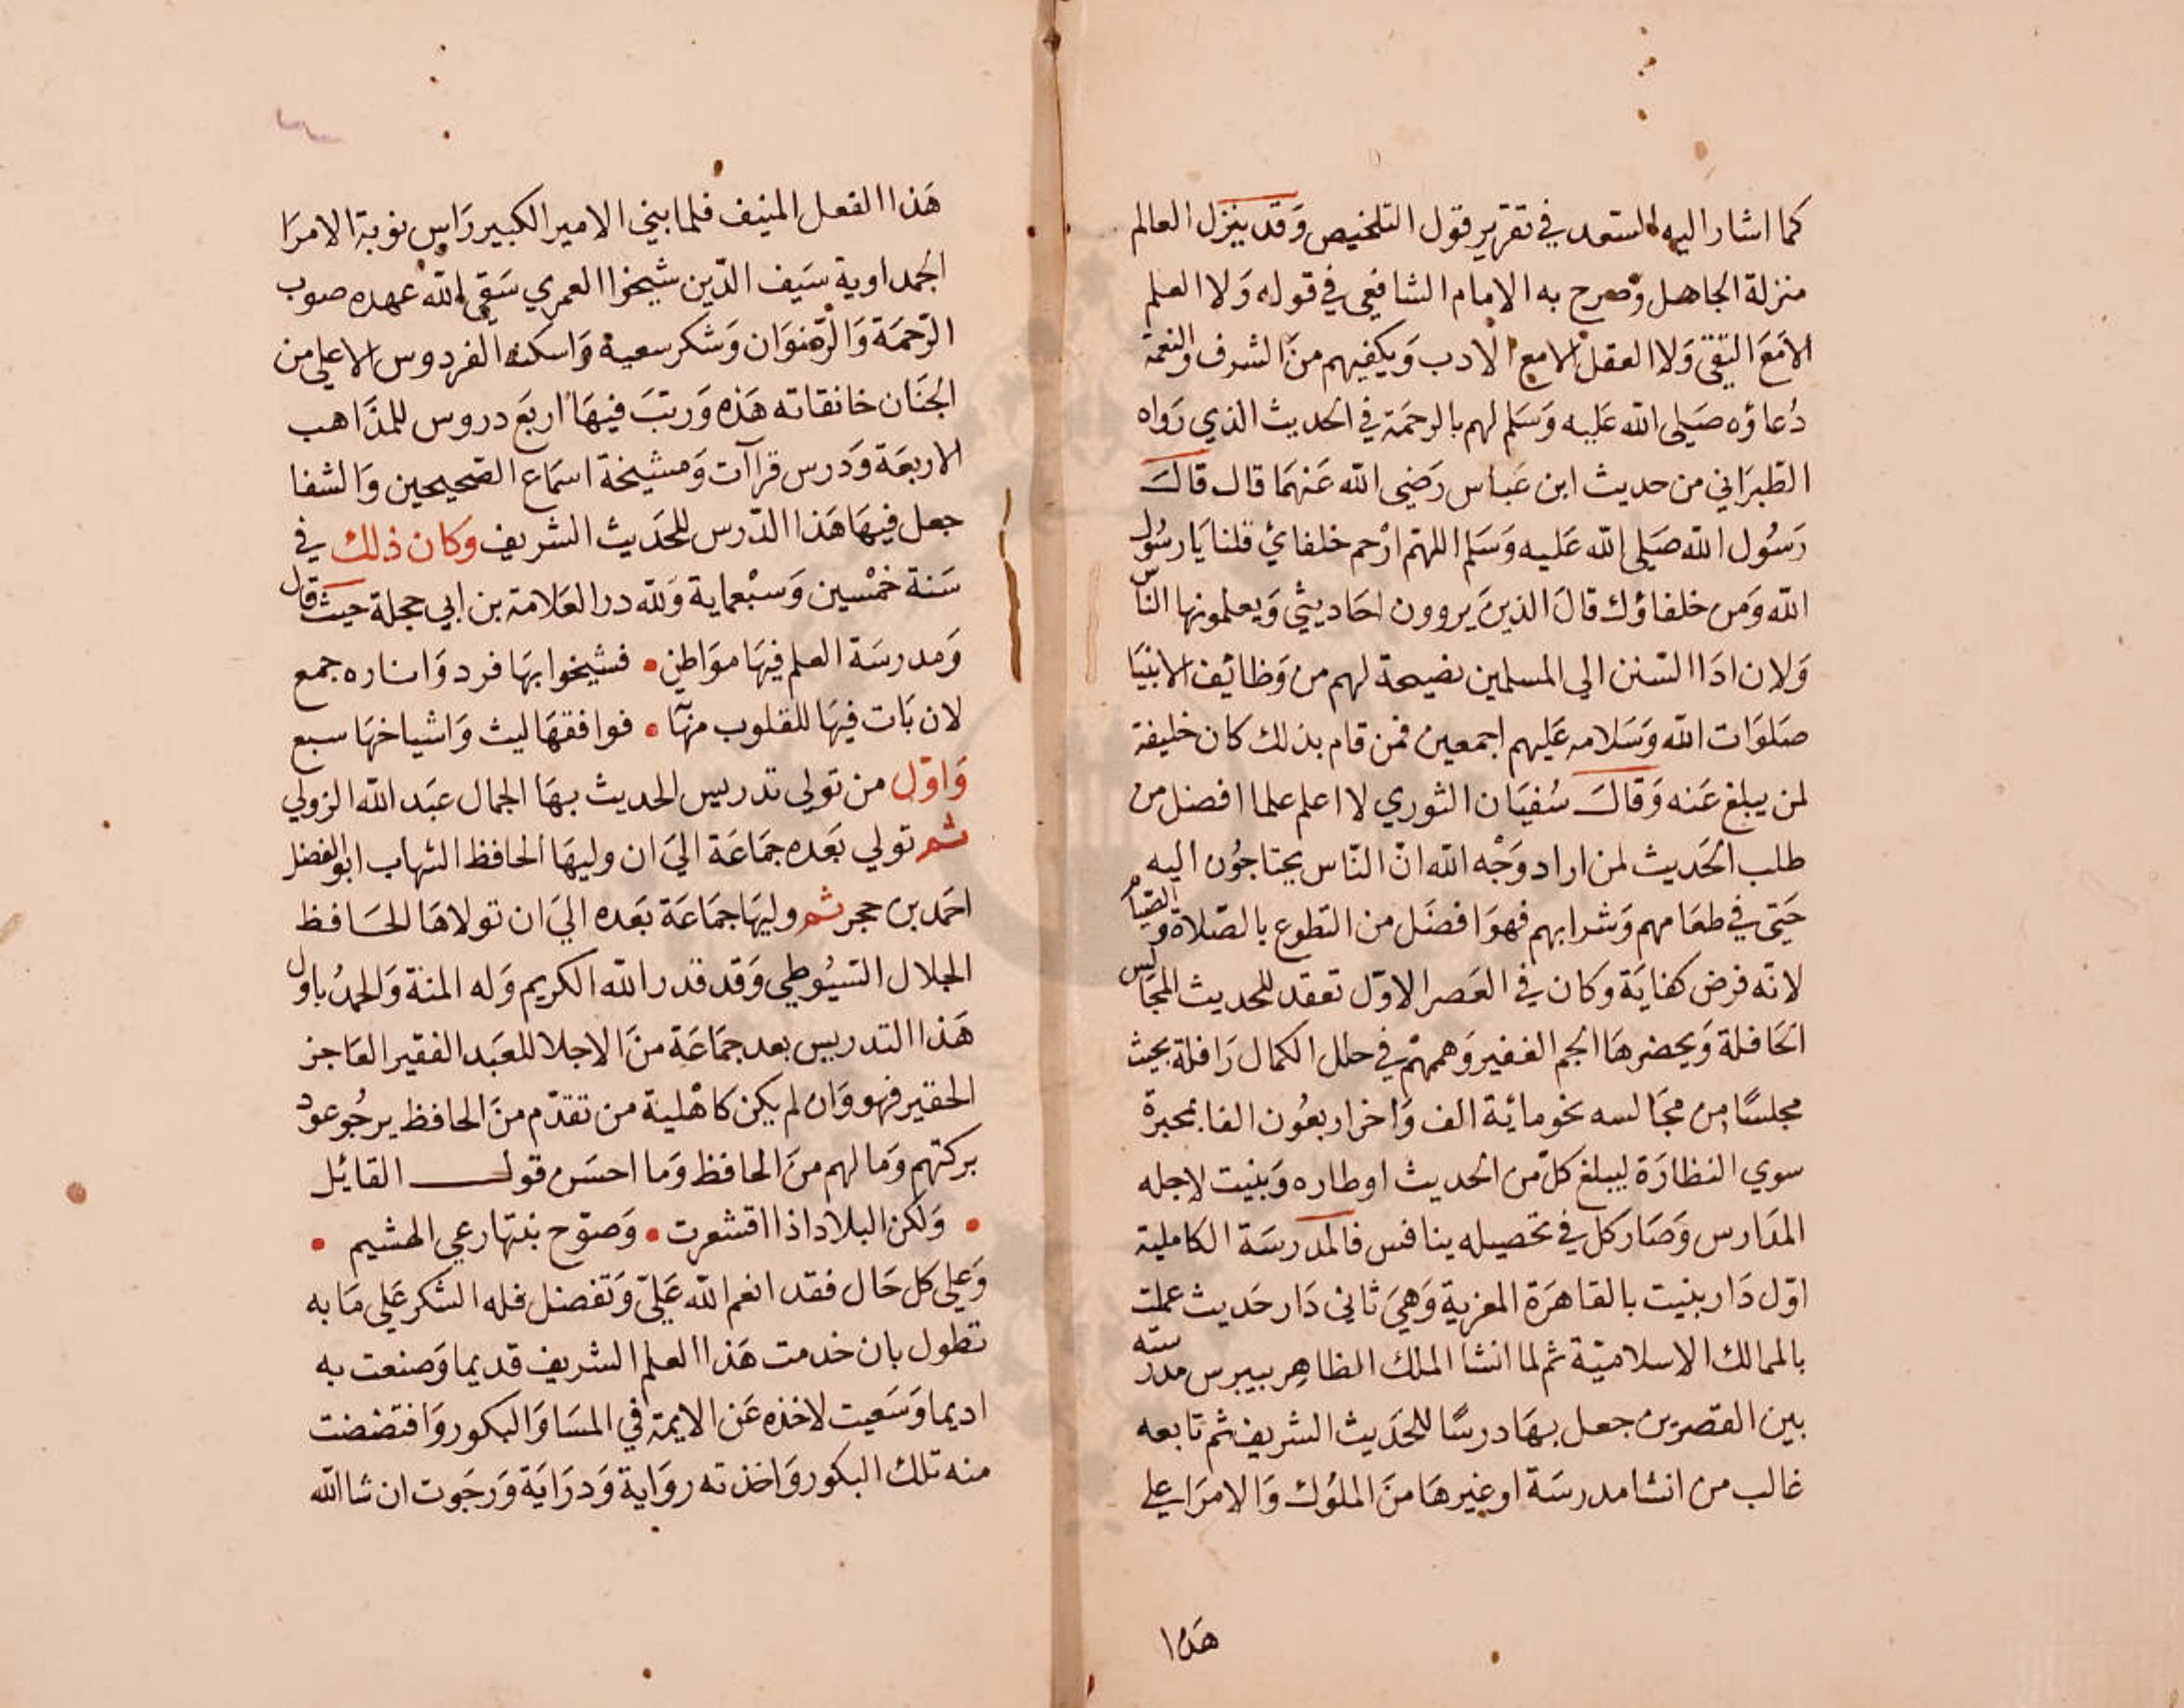 كما اشار اليه السعد في تقرير قول التلخيص وَقد ينزل العالم
منزلة الجاهل وصرح به الامام الشافعي في قوله وَلا العلم
الامَعَ التقى وَلا العقل الامع الادب وَيكفيهم منَ الشرف والنعمة
دُعاؤه صَلى الله عَليه وَسَلم لهم بالرحمَة في الحديث الذي رَواه
الطبرَاني من حديث ابن عَباس رَضي الله عَنهمَا قال قالَ
رَسُول الله صَلى الله عَليه وَسَلم اللهم ارْحم خلفائ قلنا يَا رسُول
الله وَمن خلفاؤك قالَ الذينَ يروون احَاديثي وَيعلمونها الناس
وَلان ادَا السنن الي المسلمين نصيحة لهم من وَظائف الانبيَا
صَلوَات الله وَسَلامه عَليهم اجمعين فمن قام بذلك كان خليفة
لمن يبلغ عَنه وَقالَ سُفيَان الثوري لا اعلم علما افضل من
طلب الحَديث لمن اراد وَجْه الله انّ النّاس يحتاجوُن اليه
حَتى في طعَامهم وَشرابهم فهوَ افضَل من التطوع بالصّلاة والصّيام
لانّه فرض كفايَة وَكان في العَصر الاوّل تعقد للحديث المجَالس
الحَافلة وَيحضرهَا الجم الغفير وَهممهْم في حلل الكمال رَافلة بحيث
مجلسًا من مجَالسه نحو مائية الف وَاخر اربعُون الفا بمحبرة
سوي النظارَة ليبلغ كلّ من الحديث اوطاره وَبنيت لاجله
المدَارس وَصَار كل في تحصيله ينافس فالمدرسَة الكاملية
اوّل دَار بنيت بالقاهرَة المعزية وَهيَ ثاني دَار حَديث عملت
بالممالك الاسلاميّة ثم لما انشا الملك الظاهِر بيبرس مدرسته
بين القصرَين جعل بهَا درسًا للحَديث الشريف ثم تابعه
غالب من انشا مدرسَة او غيرهَا منَ الملوُك وَالامرَا علي
هَذا
هَذا الفعل المنيف فلما بني الامير الكبير رَاس نوبة الامرَا
الجمداوية سَيف الدّين شيخوا العمري سَقى الله عهده صوب
الرّحمَة وَالرّضوَان وَشكر سعيه وَاسكنه الفردوس الاعلي من
الجنَان خانقاته هَذه وَرتبَ فيهَا اربَع دروس للمذَاهب
الاربعَة وَدَرس قراآت وَمشيخة اسمَاع الصّحيحين وَالشفا
جعل فيهَا هَذا الدّرس للحَديث الشريف وَكان ذلك في
سَنة خمْسين وَسبْعماية وَلله در العَلامة بن ابي حجلة حيث قال
وَمدرسَة العلم فيهَا موَاطن • فشيخوا بهَا فرد وَاناره جمع
لان بَات فيهَا للقلوب مهَابا • فواقفهَا ليث وَاشياخهَا سبع
وَاوّل من تولي تدريس الحديث بهَا الجمال عبَد الله الزولي
ثم تولي بَعده جمَاعَة اليَ ان وليهَا الحافظ الشهاب ابوالفضل
احمَد بن حجر ثم وليهَا جمَاعَة بَعده اليَ ان تولاهَا الحَافظ
الجلال السيُوطي وَقد قدر الله الكريم وَله المنة وَالحمدُ باول
هَذا التدريس بعد جمَاعَة منَ الاجلا للعَبد الفقير العَاجز
الحقير فهو وَان لم يكن كاهْلية من تقدّم منَ الحافظ يرجُو عود
بركتهم وَمالهم منَ الحافظ وَما احسَن قول القائل
• وَلكن البلاد اذا اقشعرت • وَصوّح نبتها رعي الهشيم •
وَعلي كل حَال فقد انعم الله عَليّ وَتفضل فله الشكر عَلي مَا به
تطول بان خدمت هَذا العلم الشريف قديما وَصنعت به
اديما وَسَعيت لاخذه عَن الايمة في المسَا وَالبكور وَافتضضت
منه تلك البكور وَاخذته روَاية وَدرَايَة وَرجَوت ان شا الله